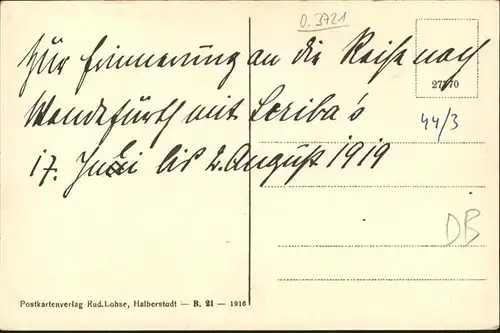 0.3721
Zur Erinnerung an die Reise nach
27770
Wendefurth mit Scriba's
44/3
17. Juli bis 2. August 1919
DB
Postkartenverlag Rud. Lohse, Halberstadt — B. 21 — 1916